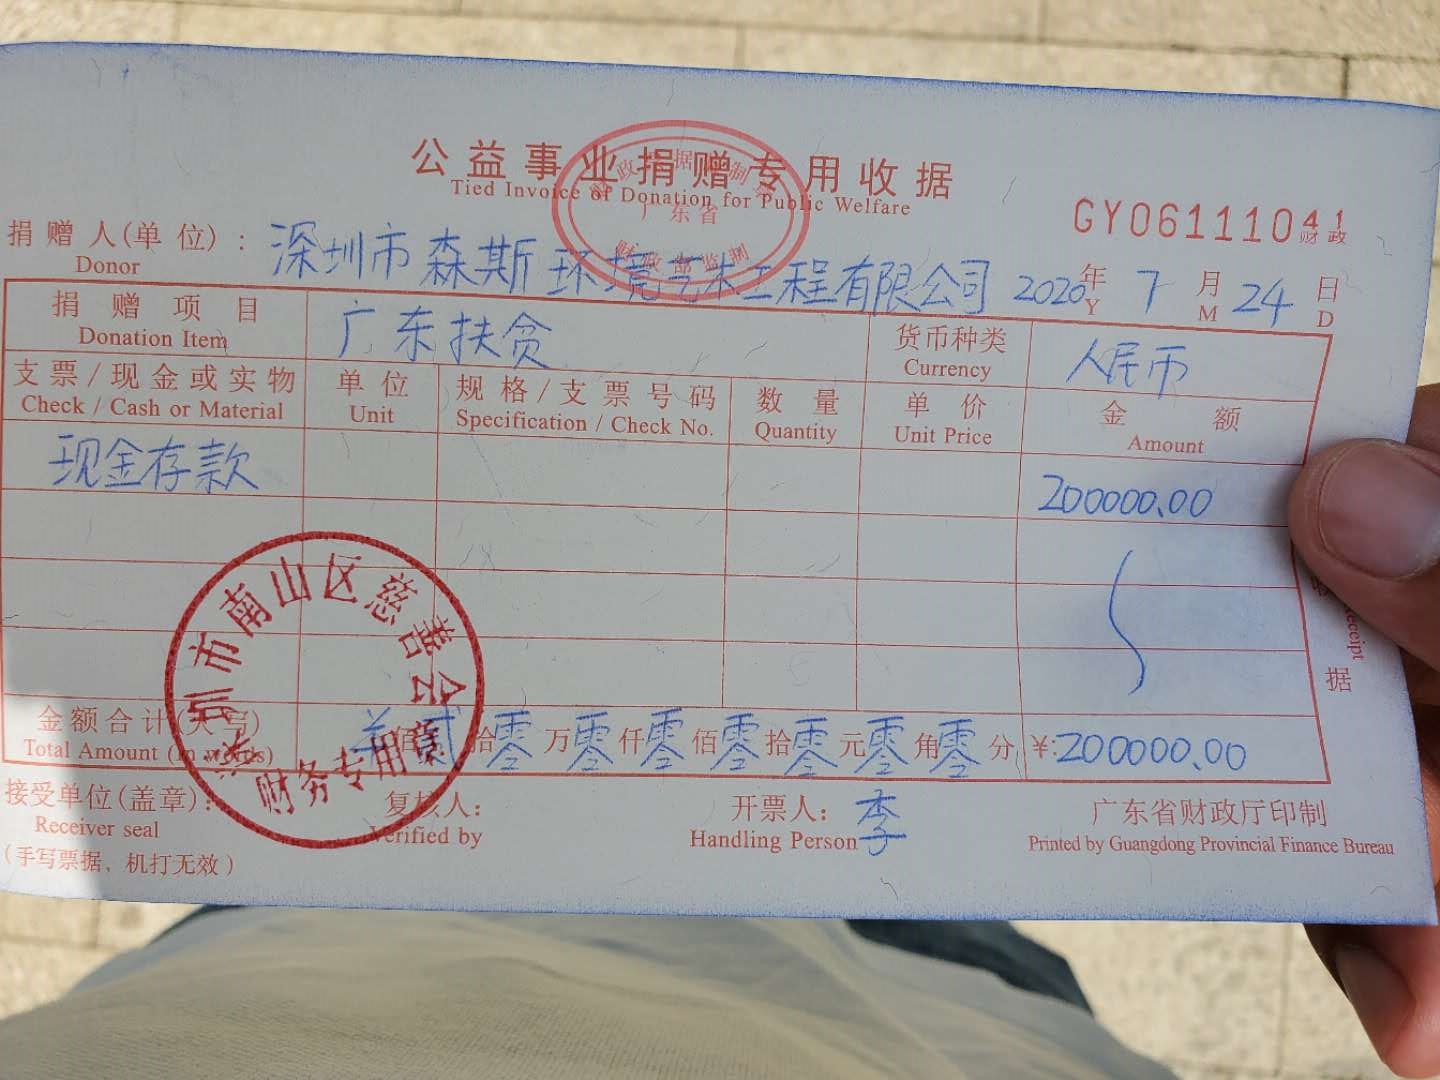 公益事业捐赠专用收据
Tied Invoice of Donation for Public Welfare
GY06111041
财政
捐赠人(单位)：深圳市森斯环境艺术工程有限公司 2020年7月24日
Donor Y M D
捐赠项目 广东扶贫 货币种类 人民币
Donation Item Currency
支票/现金或实物 单位 规格/支票号码 数量 单价 金额
Check / Cash or Material Unit Specification / Check No. Quantity Unit Price Amount
现金存款 200000.00
金额合计(大写) 佰贰拾零万零仟零佰零拾零元零角零分 ¥:200000.00
Total Amount (in words)
接受单位(盖章)： 复核人： 开票人：李 广东省财政厅印制
Receiver seal Verified by Handling Person Printed by Guangdong Provincial Finance Bureau
(手写票据，机打无效)
深圳市南山区慈善会
财务专用章
广东省
据
Receipt